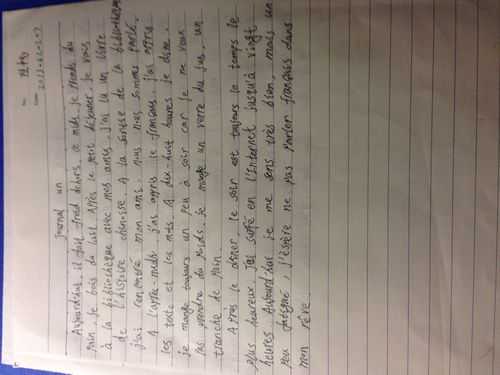 No.
Date 2013-12-27
Journal un
Aujourd'hui, il fait froid dehors, ce midi, je prends du
pain, je bois du lait. Après le petit déjeuner, je vais
à la bibliothèque avec mes amies. j'ai lu un livre
de l'histoire chinoise. A la sortie de la bibliothèque
j'ai rencontré mon ami. nous nous sommes parlé.
A l'après-midi, j'ai appris le français, j'ai appris
les texte et les mots. A dix huit heures je dîne.
je mange toujours un peu à soir car je me veux
pas prendre du poids. je mange un verre du jus, un
tranche de pain.
Après le dîner, le soir est toujours le temps le
plus heureux. j'ai surfé en l'Internet jusqu'à vingt
heures Aujourd'hui je me sens très bien, mais un
peu fatigué, j'espère ne pas parler français dans
mon rêve.